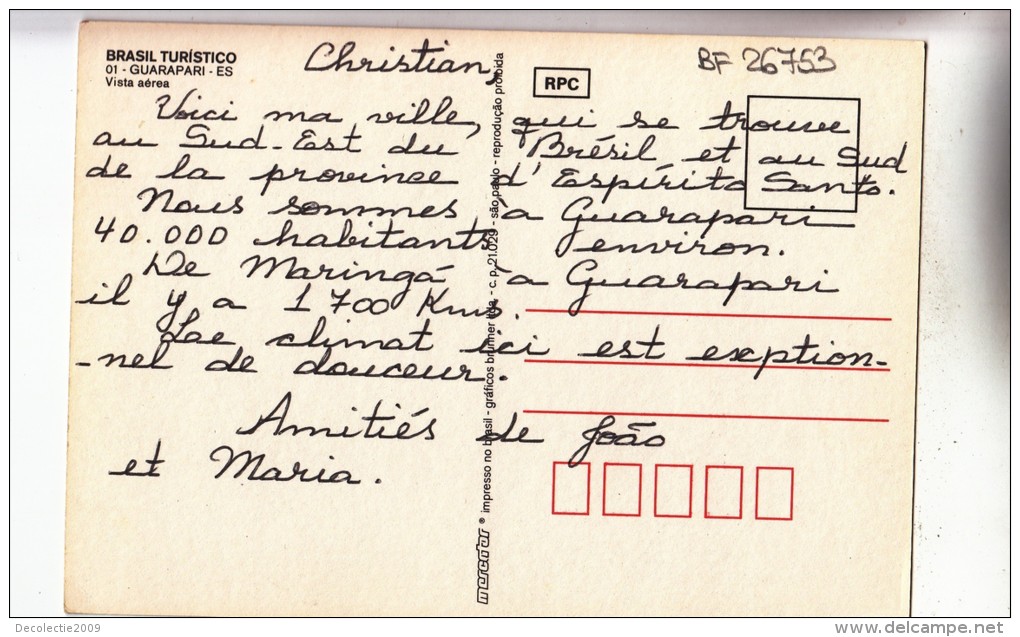 BRASIL TURÍSTICO
01 - GUARAPARI - ES
Vista aérea
BF 26753
RPC
Christian,
Voici ma ville, qui se trouve
au Sud-Est du Brésil et au Sud
de la province d'Espírito Santo.
Nous sommes à Guarapari
40.000 habitants environ.
De Maringá à Guarapari
il y a 1 700 Kms.
Le climat ici est exption-
-nel de douceur.
Amitiés de João
et Maria.
mercator ® impresso no brasil - gráficos brunner ltda. - c. p. 21.029 - são paulo - reprodução proibida
Decolectie2009
www.delcampe.net